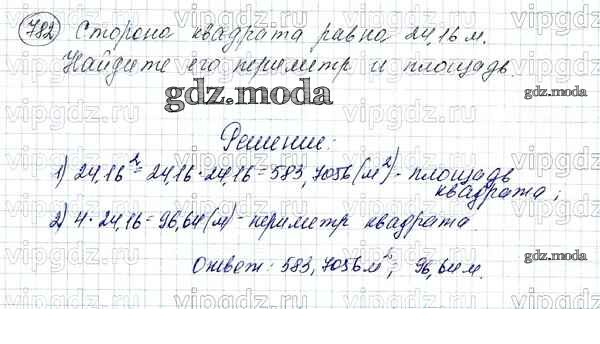 782 Сторона квадрата равна 24,16 м.
Найдите его периметр и площадь.
gdz.moda
gdz.moda
Решение:
1) 24,16² = 24,16 · 24,16 = 583,7056 (м²) - площадь
квадрата;
2) 4 · 24,16 = 96,64 (м) - периметр квадрата
gdz.moda
Ответ: 583,7056 м²; 96,64 м.
vipgdz